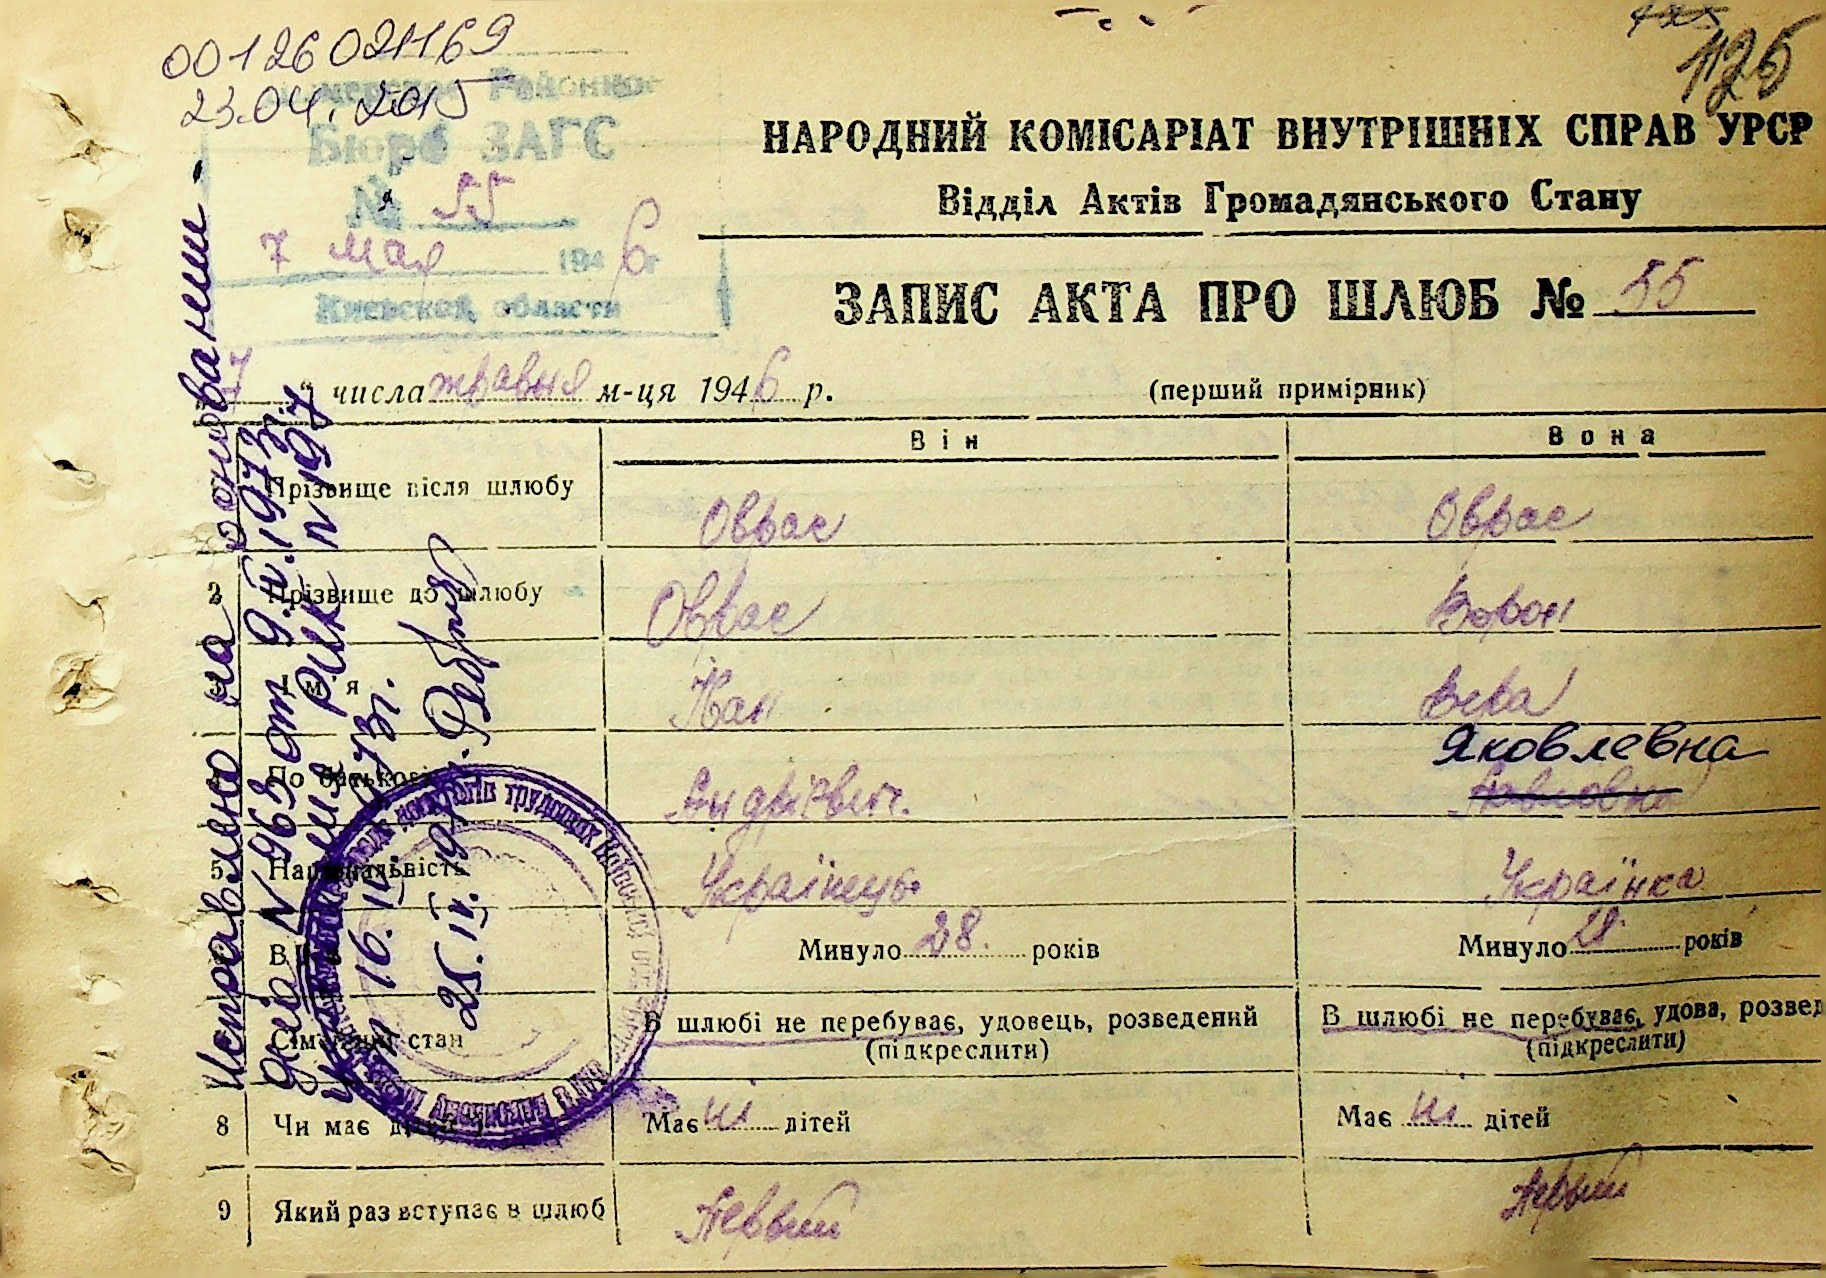 00126021169
23.04.2015
125
Районное
Бюро ЗАГС
№ 55
7 мая 1946 г
Киевской области
НАРОДНИЙ КОМІСАРІАТ ВНУТРІШНІХ СПРАВ УРСР
Відділ Актів Громадянського Стану
ЗАПИС АКТА ПРО ШЛЮБ № 55
„7“ числа травня м-ця 1946 р.
(перший примірник)
Він Вона
Прізвище після шлюбу Оврас Оврас
2 Прізвище до шлюбу Оврас Ворон
3 Ім'я Иван Вера
Яковлевна
4 По батькові Андріевич. Павловна
5 Національність Українець Українка
В Минуло 28 років Минуло 28 років
Сімейний стан В шлюбі не перебуває, удовець, розведений В шлюбі не перебуває, удова, розвед
(підкреслити) (підкреслити)
8 Чи має дітей Має ні дітей Має ні дітей
9 Який раз вступає в шлюб Первый Первый
Исправлено на основании -
дело N 963 от 9.IV.1973г.
N 197
16.IV.73г.
25.IV.197
депутатів трудящих Київської